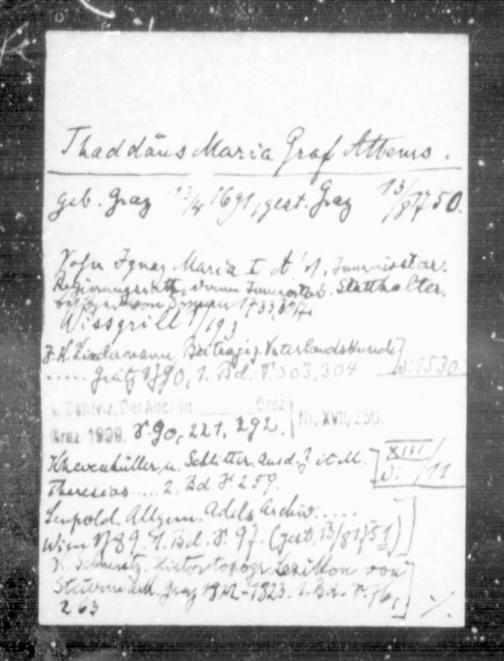 Thaddäus Maria Graf Attems.
geb. Graz 13/4 1691, gest. Graz 13/8 1750.
Sohn Ignaz Maria I A's, Innerösterr.
Regierungsrath, Innerösterr. Statthalter.
1733,
Wissgrill I/193
J. K. Kindermann Beiträge z. Vaterlandskunde
..... Grätz 1790, 1. Bd. S. 303, 304
Der Adel in Graz
Graz 1909, S. 90, 221, 292. Nr. XVII, 250.
Khevenhüller u. Schlitter, aus d. Z. it. M. XIII
Theresias ..... 2. Bd. S. 259. /11
Leupold. Allgem. Adels Archiv .....
Wien 1789. 1. Bd. S. 97. (gest. 13/8 1751)
Schmutz. Histor. topogr. Lexikon von
Steiermark. Graz 1822-1823. 1. Bd. S. 76,
263